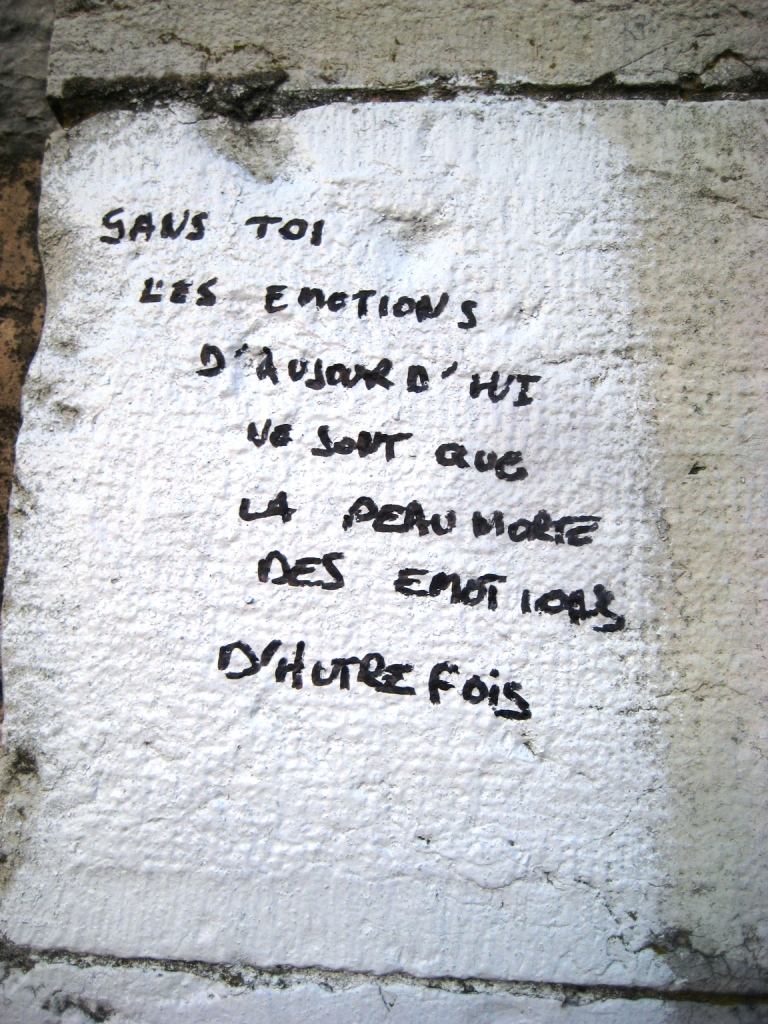 SANS TOI
LES EMOTIONS
D'AUJOURD'HUI
NE SONT QUE
LA PEAU MORTE
DES EMOTIONS
D'AUTREFOiS